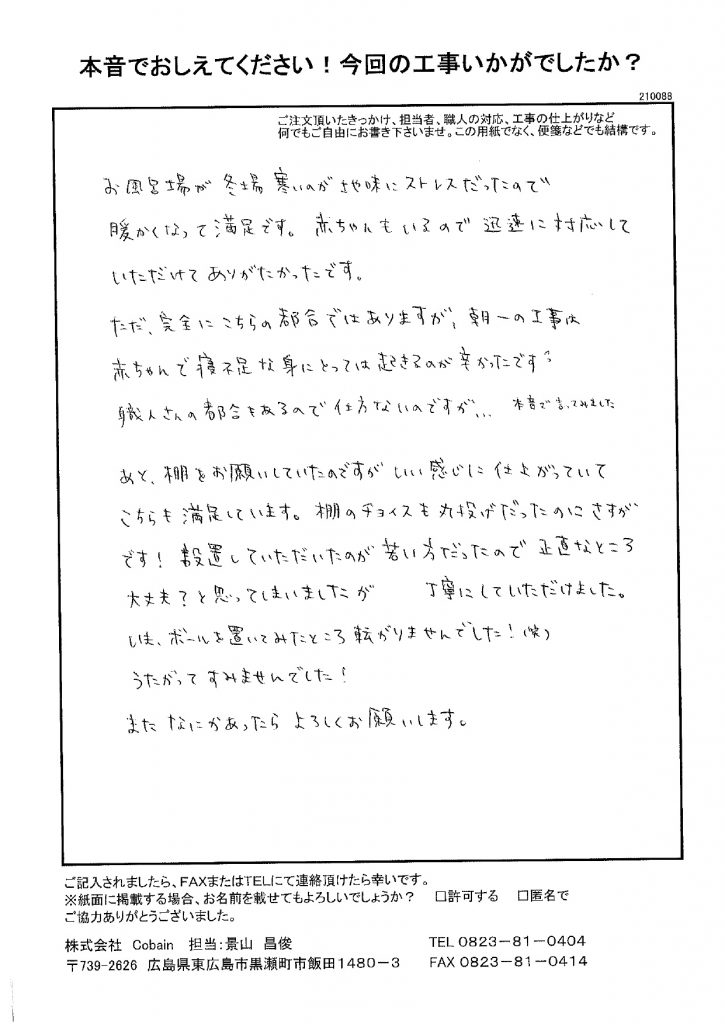 本音でおしえてください！今回の工事いかがでしたか？
210088
ご注文頂いたきっかけ、担当者、職人の対応、工事の仕上がりなど
何でもご自由にお書き下さいませ。この用紙でなく、便箋などでも結構です。
お風呂場が 冬場 寒いのが 地味に ストレスだったので
暖かくなって 満足です。赤ちゃんもいるので 迅速に 対応して
いただけて ありがたかったです。
ただ、完全に こちらの都合ではありますが、朝一の工事は
赤ちゃんで 寝不足な身にとっては 起きるのが 辛かったです
職人さんの都合もあるので 仕方ないのですが... 本音で言ってみました
あと、棚をお願いしていたのですが いい感じに 仕上がっていて
こちらも 満足しています。棚のチョイスも 丸投げだったのに さすが
です！ 設置していただいたのが 若い方だったので 正直なところ
大丈夫？と思ってしまいましたが 丁寧にしていただけました。
いま、ボールを置いてみたところ 転がりませんでした！(笑)
うたがって すみませんでした！
また なにかあったら よろしくお願いします。
ご記入されましたら、FAXまたはTELにて連絡頂けたら幸いです。
※紙面に掲載する場合、お名前を載せてもよろしいでしょうか？ □許可する □匿名で
ご協力ありがとうございました。
株式会社 Cobain 担当：景山 昌俊 TEL 0823－81－0404
〒739-2626 広島県東広島市黒瀬町市飯田1480－3 FAX 0823－81－0414